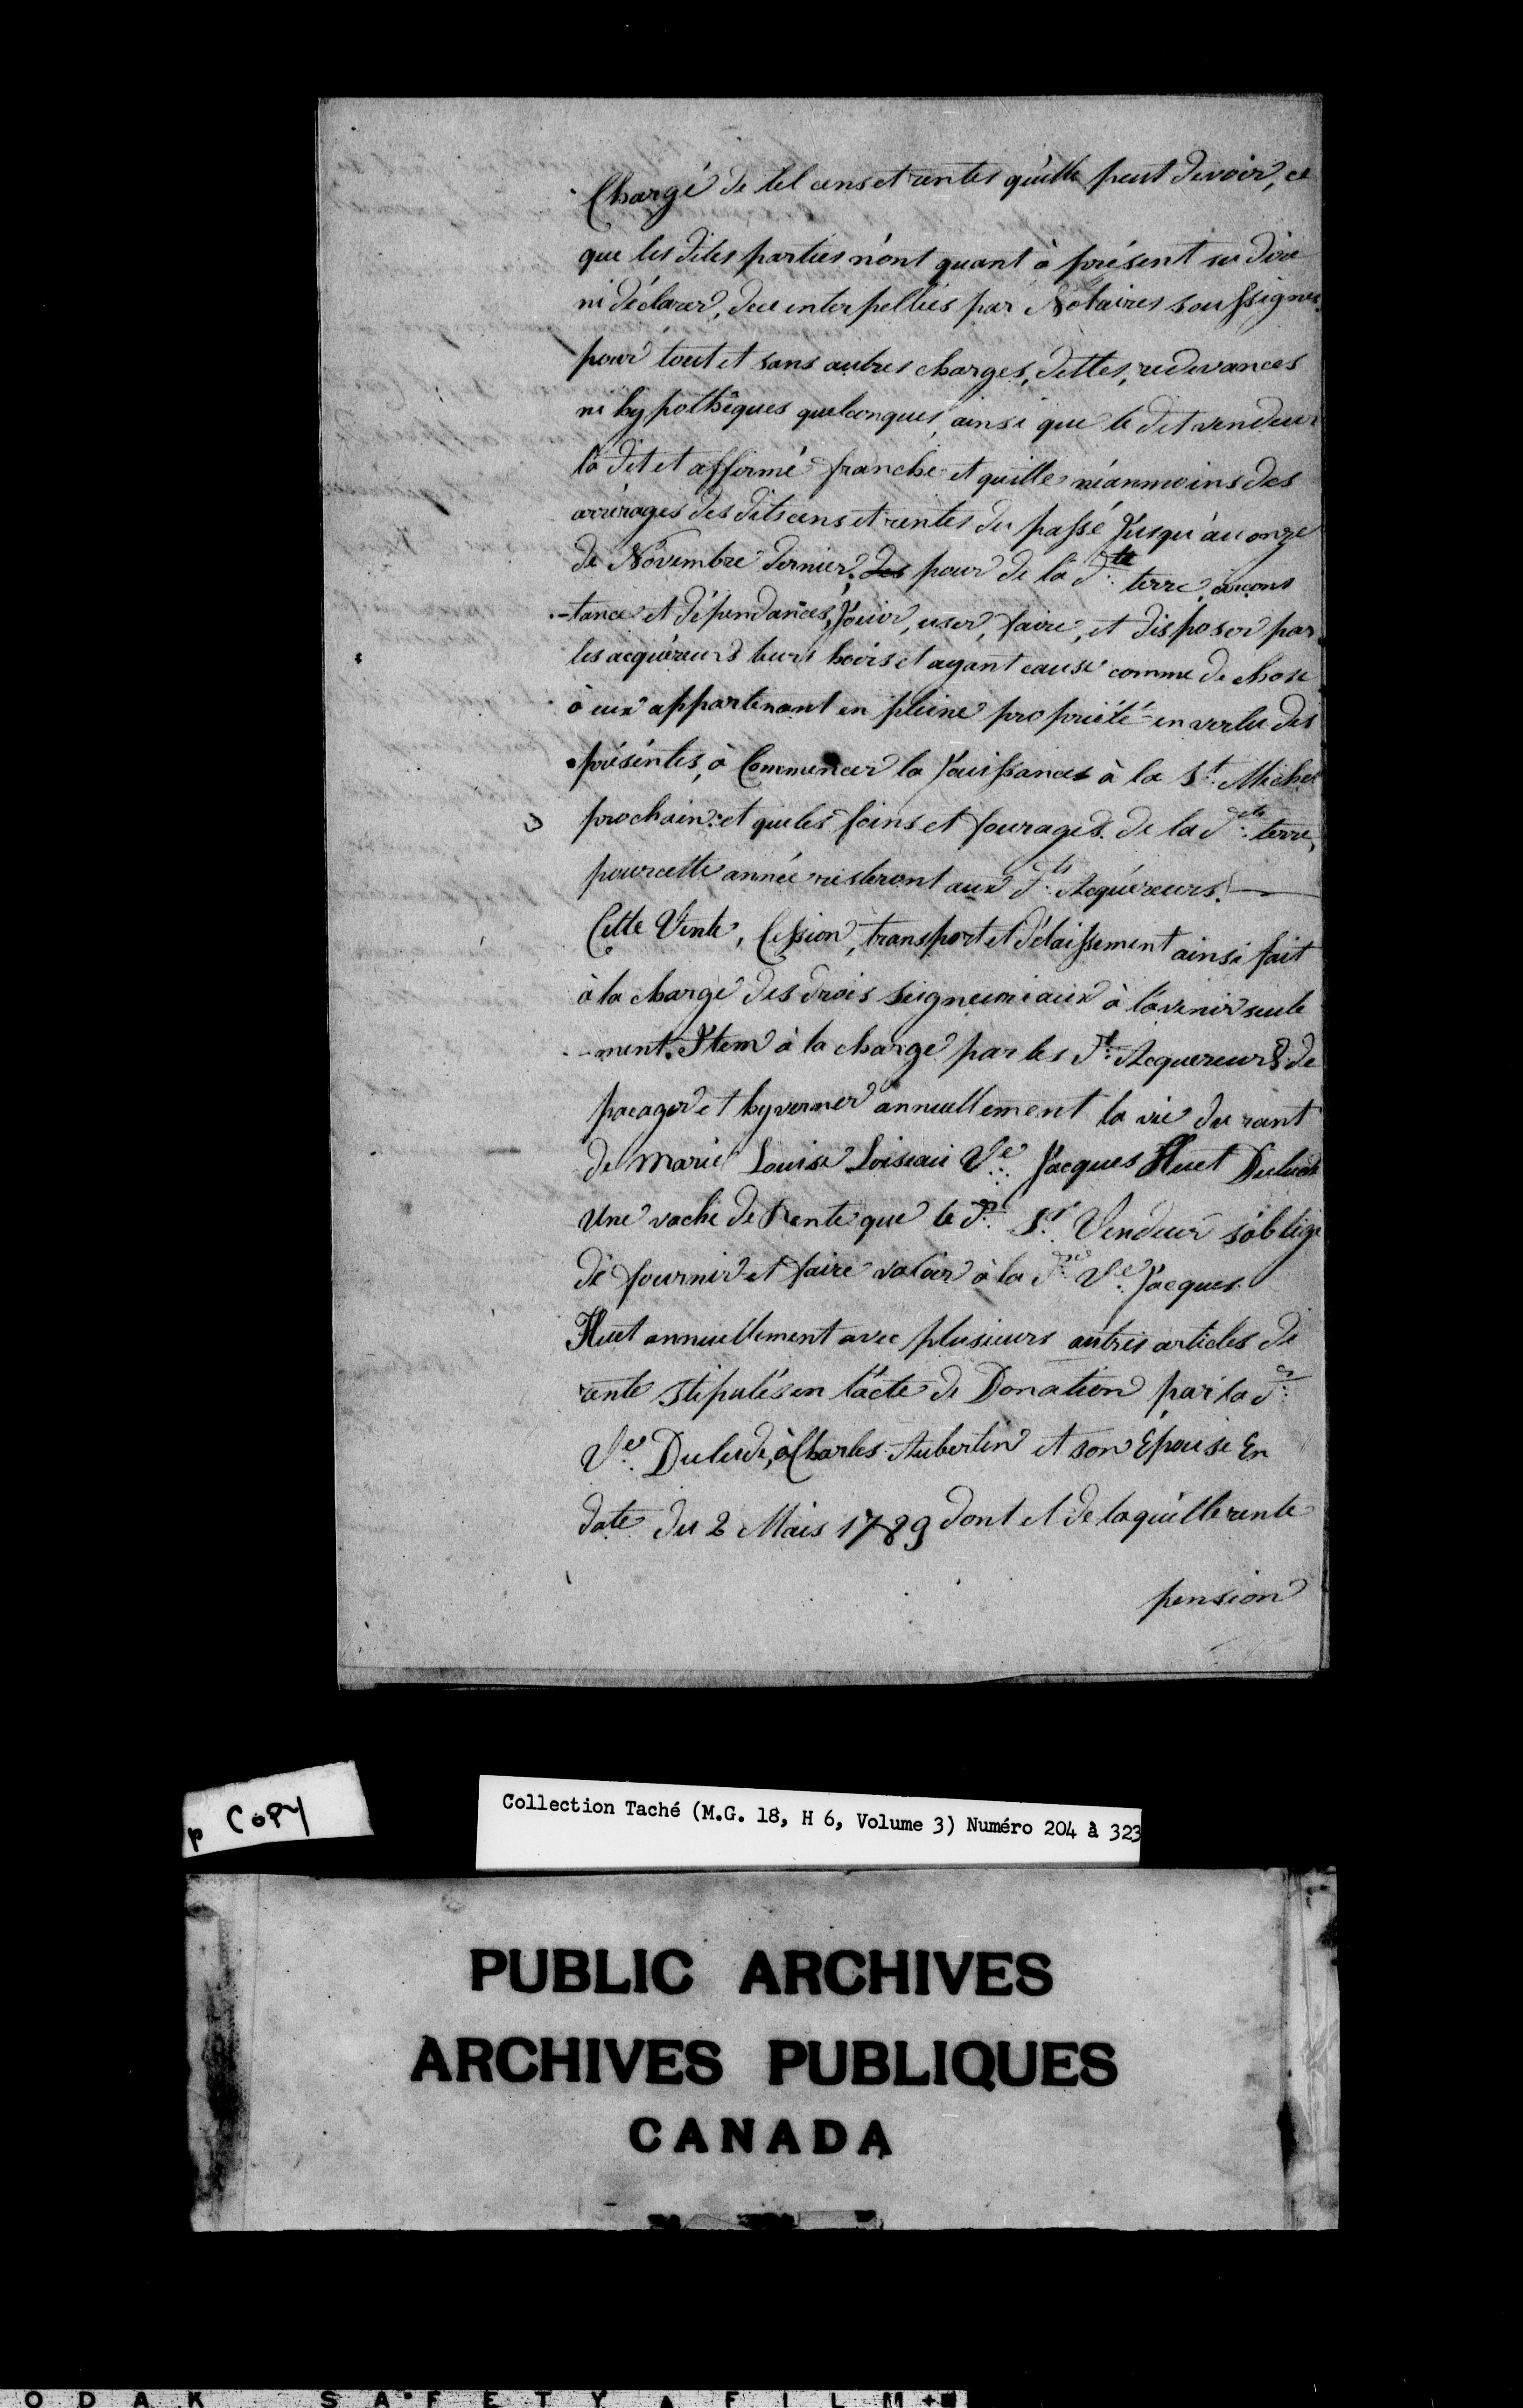 Chargé de tel cens et rentes qu'elle peut devoir, ce
que les dites parties n'ont quant à présent su dire
ni déclarer, de ce interpellées par Notaires soussignés
pour tout et sans autres charges, dettes, redevances
ni hypothêques quelconques, ainsi que le dit vendeur
l'a dit et affirmé franche et quitte néanmoins des
arrérages des dits cens et rentes du passé Jusqu'au onze
de Novembre dernier, des pour de la d.te terre, circons
-tance et dépendances, Jouir, user, faire, et disposer par
les acquéreurs leurs hoirs et ayant cause comme de chose
à eux appartenant en pleine propriété en vertu des
présentes, à Commencer la Jouissances à la St. Michel
prochain: et que les foins et fourages de la d.te terre,
pour cette année resteront aux d.ts Acquéreurs.
Cette Vente, Cession, transport et délaissement ainsi fait
à la charge des drois seigneuriaux à l'avenir seule
-ment. Item à la charge par les d.t Acquereurs de
pacager et hyverner annuellement la vie durant
de Marie Louise Loiseau V.e Jacques Huet Dulude
Une vache de Rente que le d. Sr. Vendeur s'oblige
de fournir et faire valoir à la d. V.e Jacques
Huet annuellement avec plusieurs autres articles de
rente stipulés en l'acte de Donation par la d.
V.e Dulude, à Charles Aubertin et son Épouse En
date du 2 Mais 1789 dont et de laquelle rente
pension
p COPY
Collection Taché (M.G. 18, H 6, Volume 3) Numéro 204 à 323
PUBLIC ARCHIVES
ARCHIVES PUBLIQUES
CANADA
ODAK SAFETY FILM